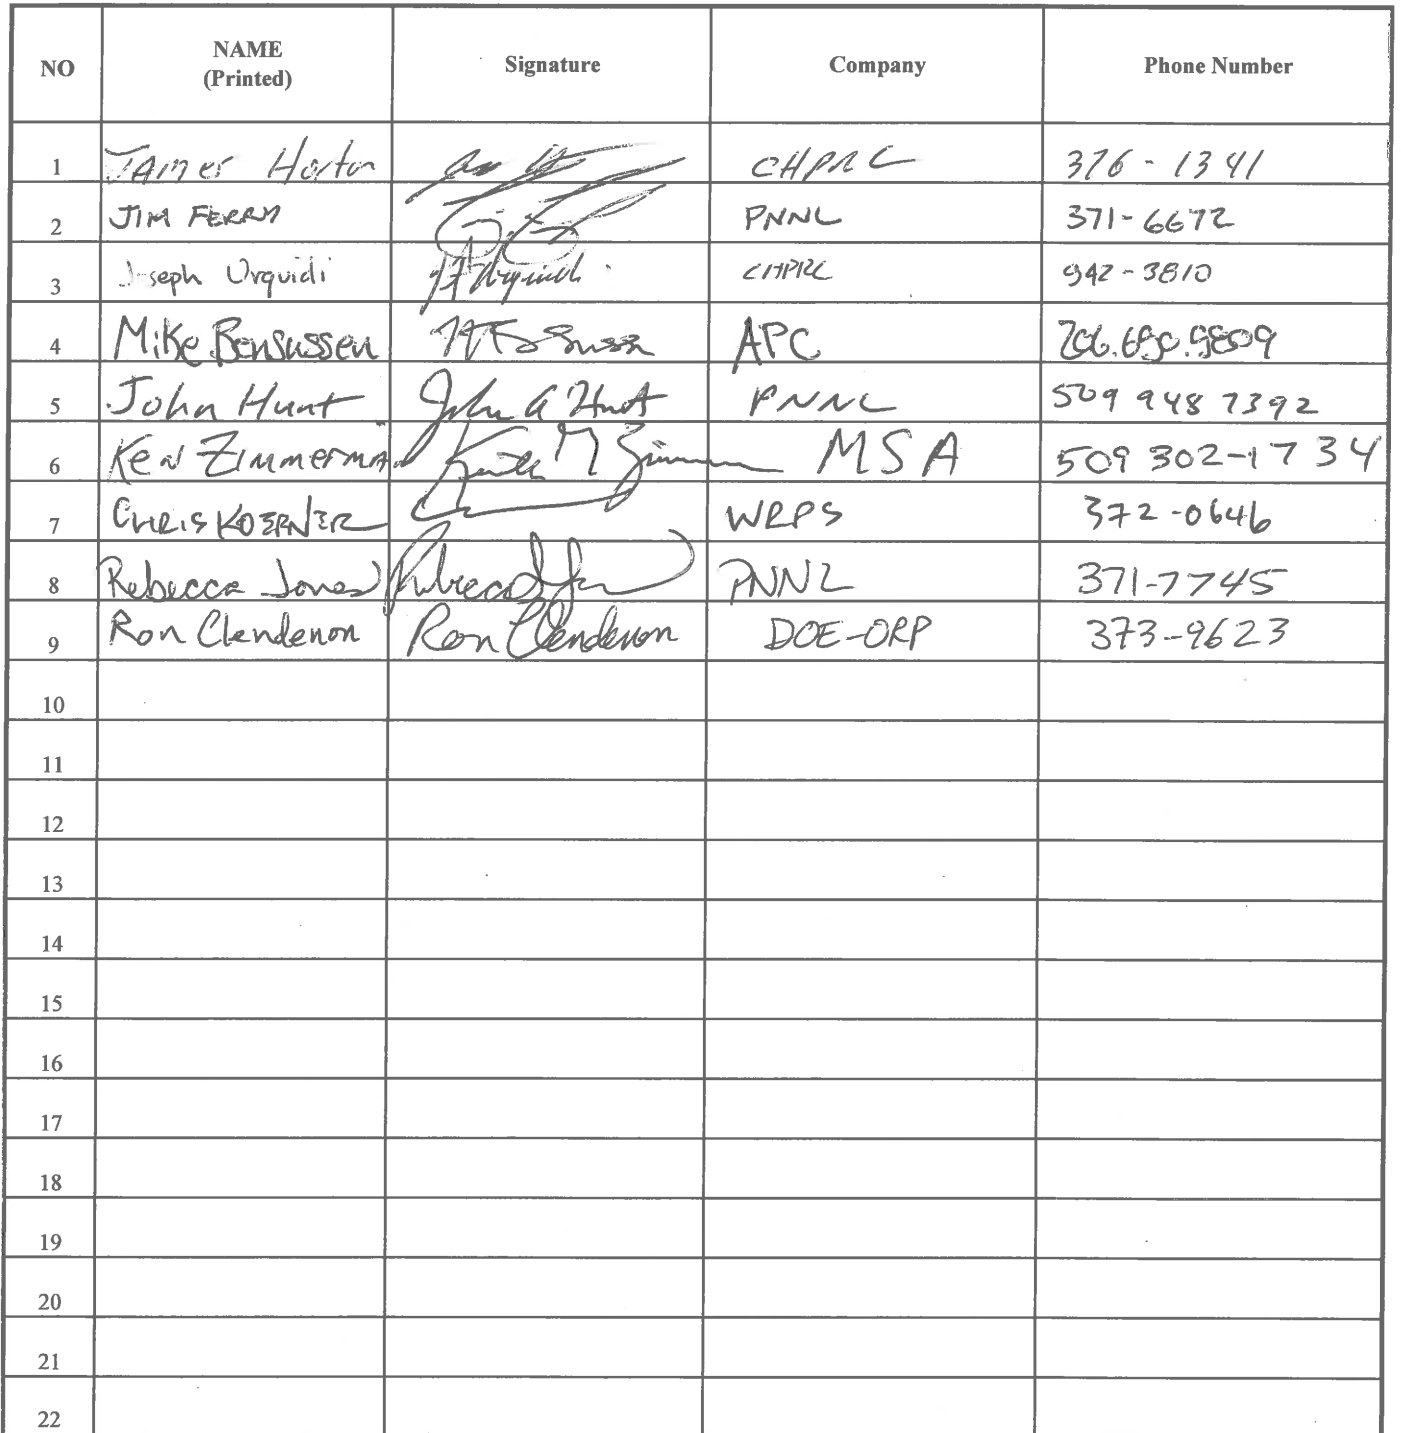 NO NAME (Printed) Signature Company Phone Number
1 James Horton CHPRC 376-1341
2 JIM FERRY PNNL 371-6672
3 Joseph Urquidi CHPRC 942-3810
4 Mike Bensussen APC
5 John Hunt John A Hunt PNNL 509 948 7392
6 Ken Zimmerman MSA 509 302-1734
7 CHRIS KOERNER WRPS 372-0646
8 Rebecca Jones PNNL 371-7745
9 Ron Clendenon Ron Clendenon DOE-ORP 373-9623
10
11
12
13
14
15
16
17
18
19
20
21
22